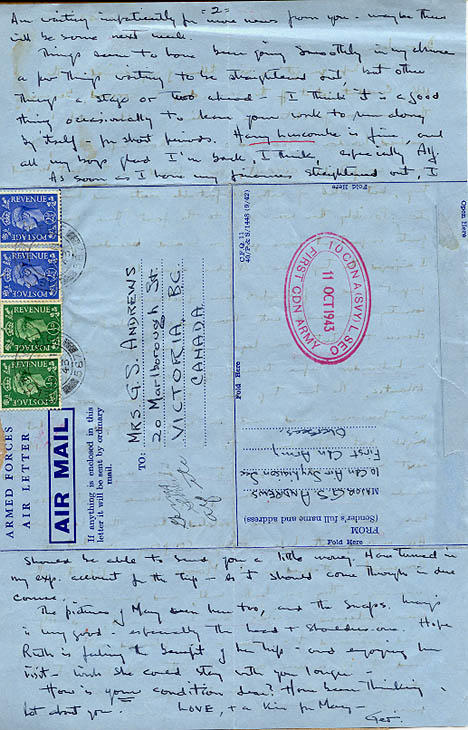 -2-
Am waiting impatiently for more news from you - maybe there
will be some next week.
Things seem to have been going smoothly in my absence
a few things waiting to be straightened out but other
things a stage or two ahead - I think it is a good
thing occasionally to leave your work to run along
by itself for short periods. Harry Luscombe is fine, and
all my boys glad I'm back, I think, especially Alf
As soon as I have my finances straightened out, I
REVENUE
POSTAGE
REVENUE
POSTAGE
REVENUE
POSTAGE
REVENUE
POSTAGE
ARMED FORCES
AIR LETTER
AIR MAIL
If anything is enclosed in this
letter it will be sent by ordinary
mail.
TO:
MRS. G.S. ANDREWS
20 Marlborough St
VICTORIA, B.C.
CANADA
Fold Here
Open Here
C.F.Q. 11
40/P.& S/1448 (9/42)
10 CDN A/SY/L SEC
11 OCT 1943
FIRST CDN ARMY
Fold Here
FROM
(Sender's full name and address)
MAJOR G.S. ANDREWS
10 Cdn Air Svy Liaison Sec
First Cdn Army
Overseas
Fold Here
Should be able to send you a little money. Have turned in
my exp. account for the trip - so it should come through in due
course.
The pictures of Mary her two, and the snaps.
is very good - especially the head & shoulders one. Hope
Ruth is feeling the benefit of her trip - and enjoying her
visit - wish she could stay with you longer.
How is your condition dear? Have been thinking a
lot about you. LOVE, & a kiss for Mary -
Ger.